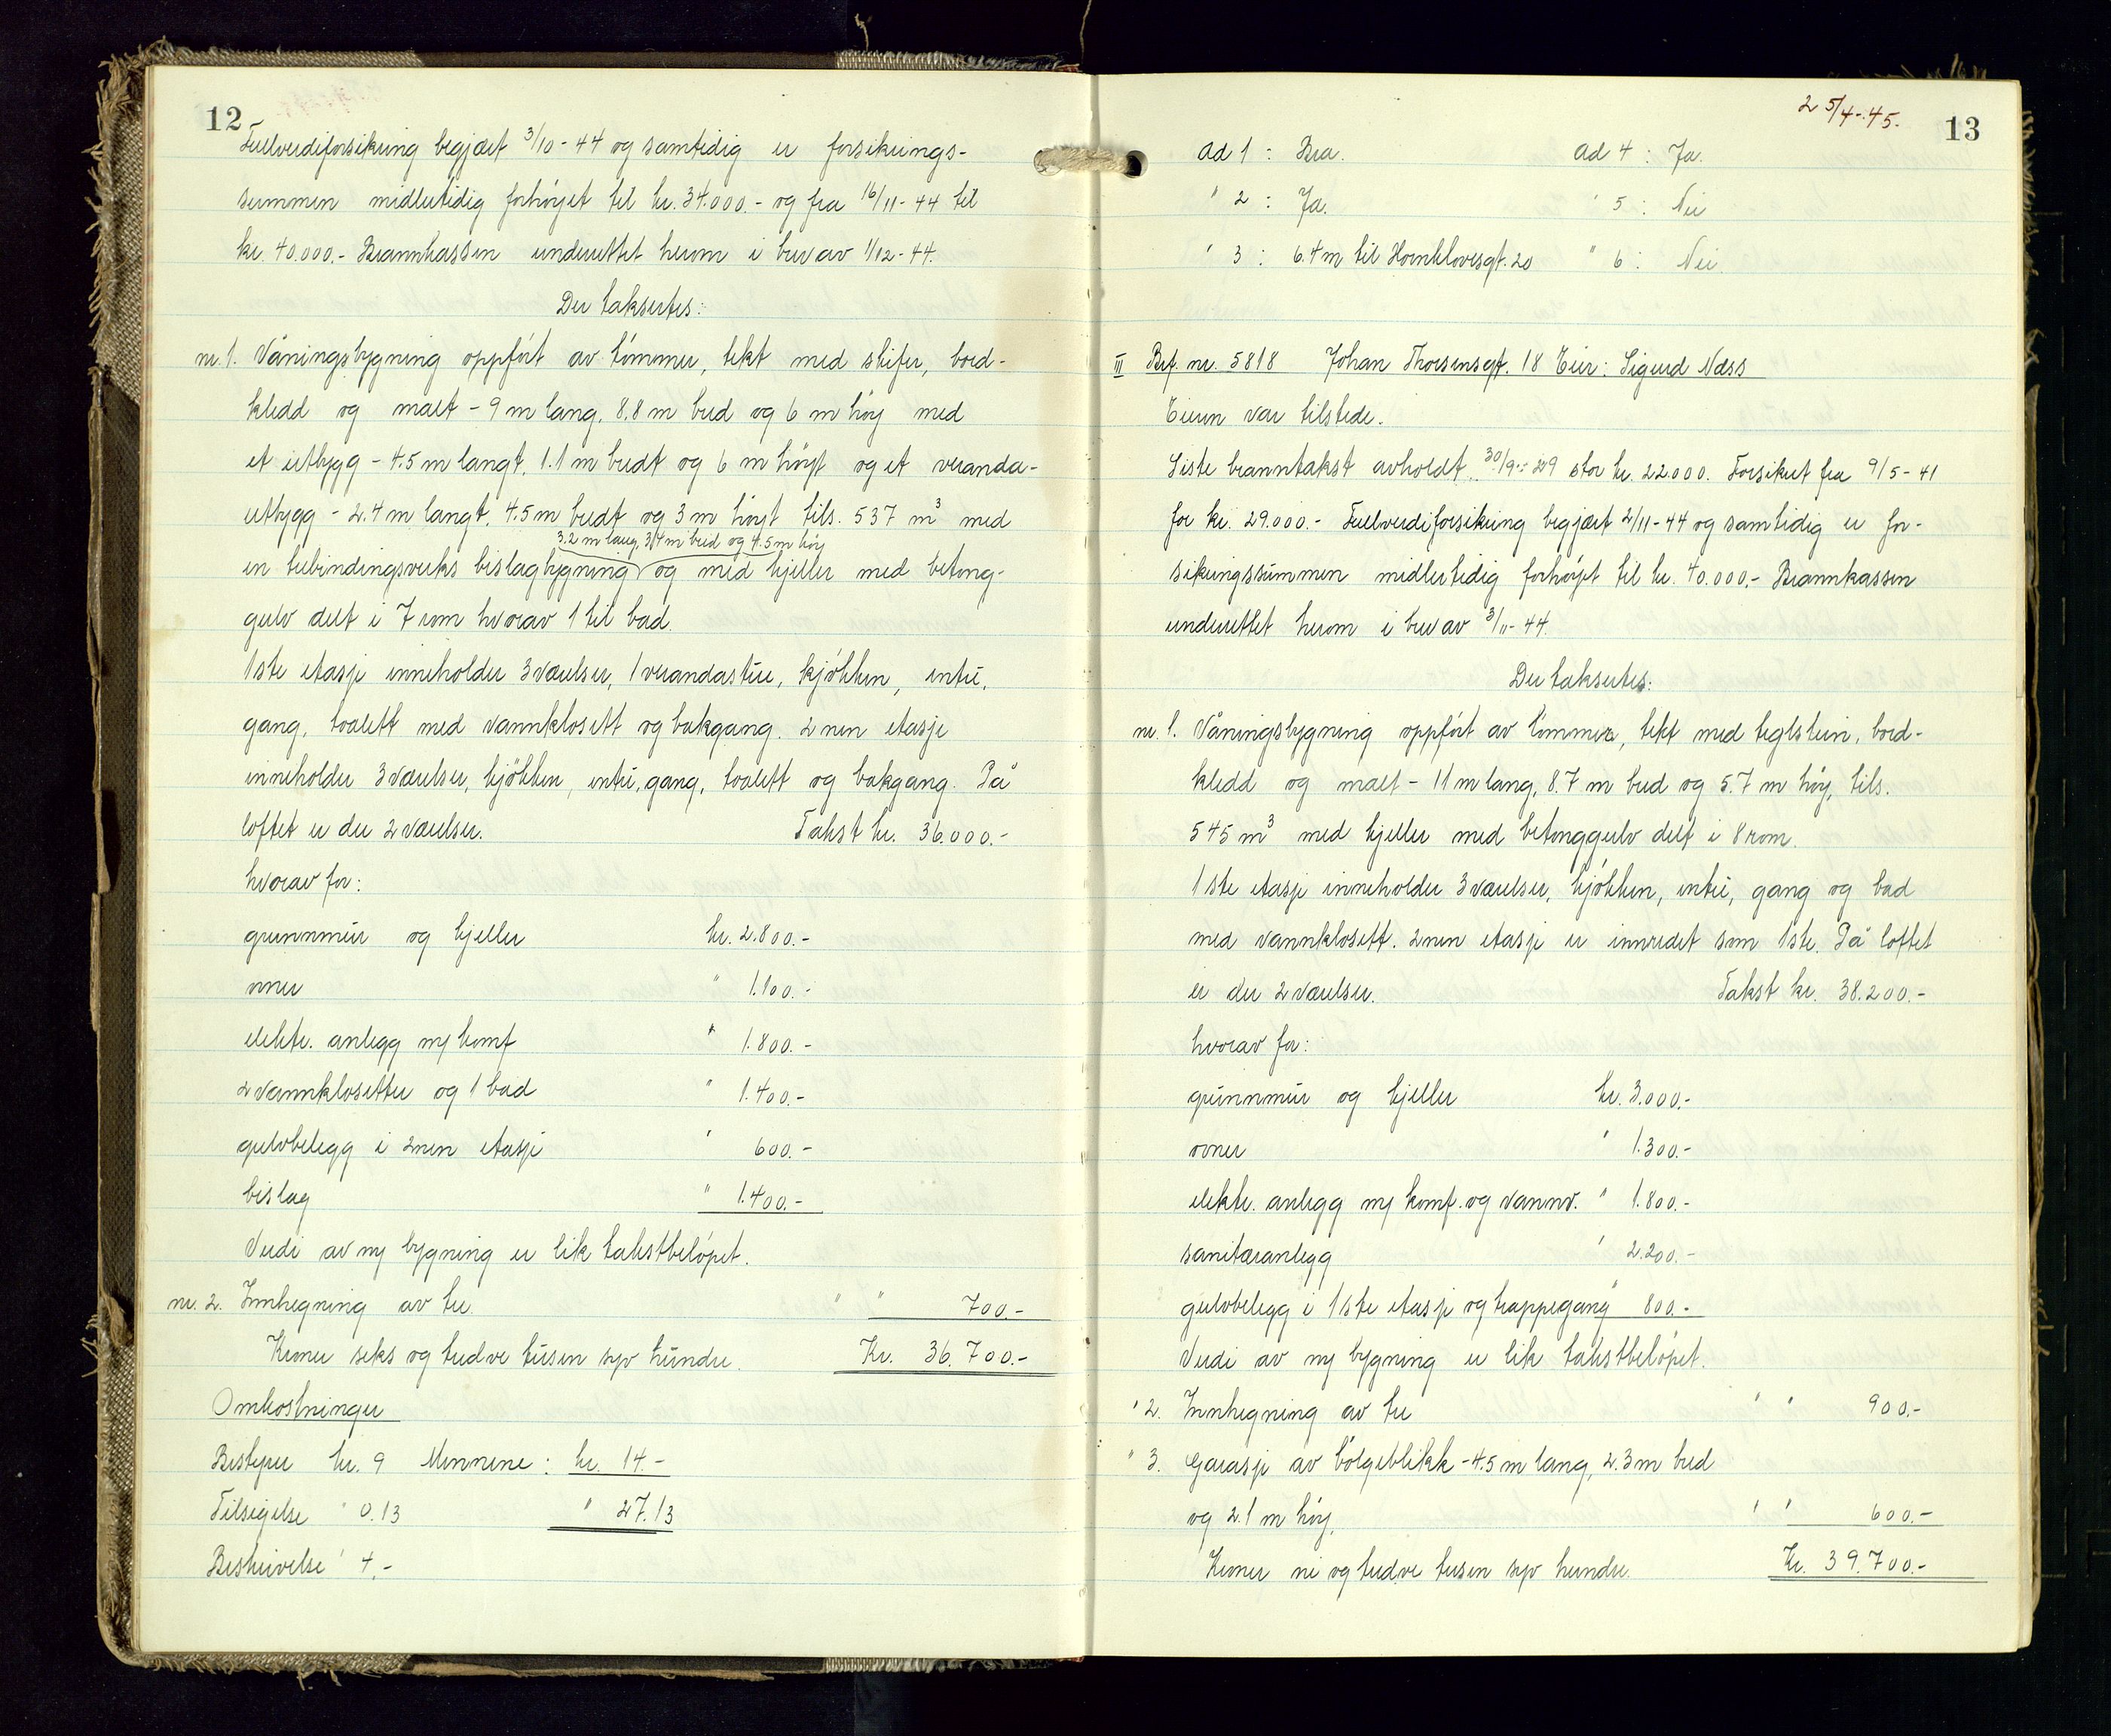 12
Fullverdiforsikring begjært 3/10-44 og samtidig er forsikrings-
summen midlertidig forhöjet til kr. 34.000.- og fra 16/11-44 til
kr. 40.000.- Brannkassen underrettet herom i brev av 1/12-44.
Der taksertes:
nr. 1. Våningsbygning oppfört av tömmer, tekt med skifer, bord-
kledd og malt - 9 m lang, 8.8 m bred og 6 m höy med
et utbygg - 4.5 m langt, 1.1 m bredt og 6 m höyt og et veranda-
utbygg - 2.4 m langt, 4.5 m bredt og 3 m höyt tils. 537 m³ med
3.2 m lang, 3.4 m bred og 4.5 m höy
en trebindingsverks bislagbygning og med kjeller med betong-
gulv delt i 7 rom hvorav 1 til bad.
1ste etasje inneholder 3 værelser, 1 verandastue, kjökken, entré,
gang, toalett med vannklosett og bakgang. 2nen etasje
inneholder 3 værelser, kjökken, entré, gang, toalett og bakgang. På
loftet er der 2 værelser. Takst kr. 36.000.-
hvorav for:
grunnmur og kjeller kr. 2.800.-
ovner " 1.100.-
elektr. anlegg m/ komf " 1.800.-
2 vannklosetter og 1 bad " 1.400.-
gulvbelegg i 2nen etasje " 600.-
bislag " 1.400.-
Verdi av ny bygning er lik takstbelöpet.
nr. 2. Innhegning av tre. " " 700.-
Kroner seks og tredve tusen syv hundre. Kr. 36.700.-
Omkostninger
Bestyrer kr. 9 Mennene: kr. 14.-
Tilsigelse " 0.13 " 27.13
Beskrivelse " 4.-
25/4-45.
13
Ad 1: Bra. Ad 4: Ja.
" 2: Ja. " 5: Nei
" 3: 6.4 m til Hornklovesgt. 20 " 6: Nei.
III Brf. nr. 5818 Johan Thorsensgt. 18 Eier: Sigurd Næss
Eieren var tilstede.
Siste branntakst avholdt 30/9-29 stor kr. 22.000. Forsikret fra 9/5-41
for kr. 29.000.- Fullverdiforsikring begjært 2/11-44 og samtidig er for-
sikringssummen midlertidig forhöjet til kr. 40.000.- Brannkassen
underrettet herom i brev av 3/11-44.
Der taksertes:
nr. 1. Våningsbygning oppfört av tömmer, tekt med teglstein, bord-
kledd og malt - 11 m lang, 8.7 m bred og 5.7 m höy, tils.
545 m³ med kjeller med betonggulv delt i 8 rom.
1ste etasje inneholder 3 værelser, kjökken, entré, gang og bad
med vannklosett. 2nen etasje er innredet som 1ste. På loftet
er der 2 værelser. Takst kr. 38.200.-
hvorav for:
grunnmur og kjeller kr. 3.000.-
ovner " 1.300.-
elektr. anlegg m/ komf. og vannv. " 1.800.-
sanitæranlegg " 2.200.-
gulvbelegg i 1ste etasje og trappegang " 800.-
Verdi av ny bygning er lik takstbelöpet.
" 2. Innhegning av tre " " 900.-
" 3. Garasje av bölgeblikk - 4.5 m lang, 2.3 m bred
og 2.1 m höy. " " 600.-
Kroner ni og tredve tusen syv hundre. Kr. 39.700.-